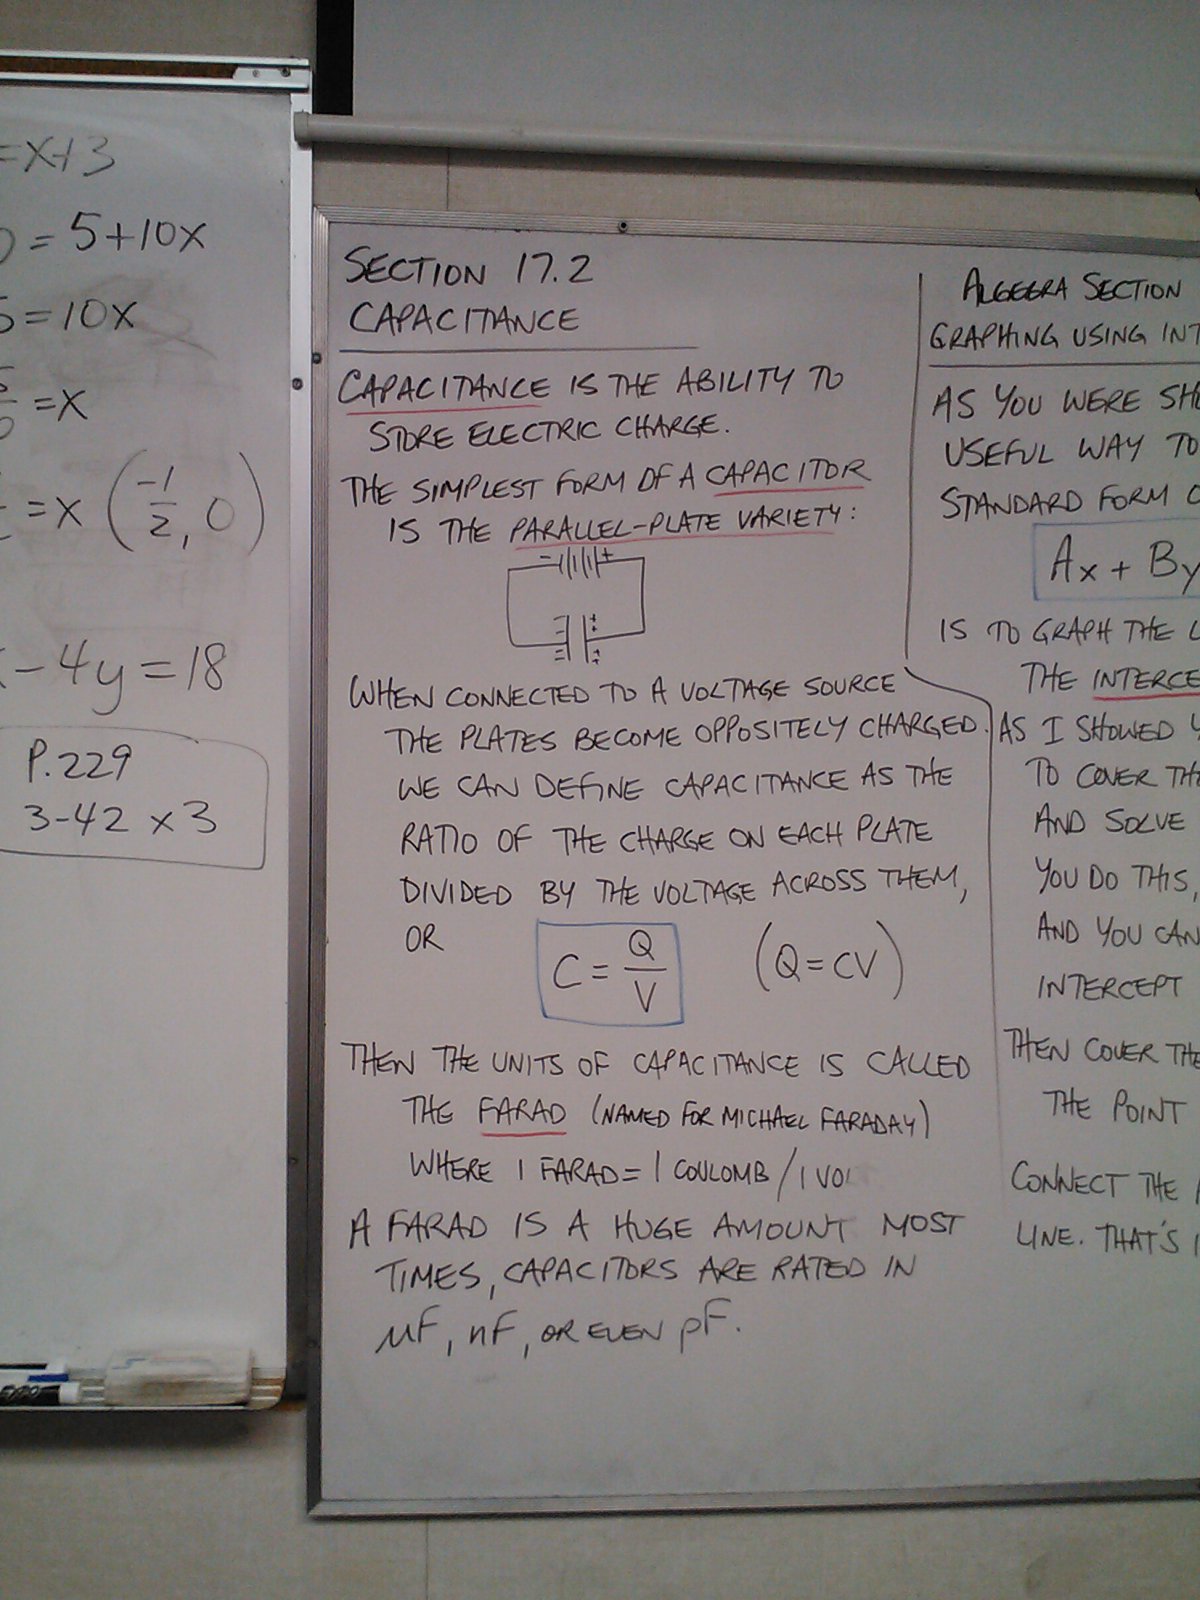 =x+3
0=5+10x
5=10x
=x
=x (-1/2, 0)
-4y=18
P.229
3-42 x3
SECTION 17.2
CAPACITANCE
CAPACITANCE IS THE ABILITY TO
STORE ELECTRIC CHARGE.
THE SIMPLEST FORM OF A CAPACITOR
IS THE PARALLEL-PLATE VARIETY:
- +
WHEN CONNECTED TO A VOLTAGE SOURCE
THE PLATES BECOME OPPOSITELY CHARGED.
WE CAN DEFINE CAPACITANCE AS THE
RATIO OF THE CHARGE ON EACH PLATE
DIVIDED BY THE VOLTAGE ACROSS THEM,
OR C=Q/V (Q=CV)
THEN THE UNITS OF CAPACITANCE IS CALLED
THE FARAD (NAMED FOR MICHAEL FARADAY)
WHERE 1 FARAD=1 COULOMB/1 VOL
A FARAD IS A HUGE AMOUNT MOST
TIMES, CAPACITORS ARE RATED IN
µF, nF, OR EVEN pF.
ALGEBRA SECTION
GRAPHING USING INT
AS YOU WERE SHO
USEFUL WAY TO
STANDARD FORM O
Ax + By
IS TO GRAPH THE
THE INTERCE
AS I SHOWED Y
TO COVER THE
AND SOLVE
YOU DO THIS,
AND YOU CAN
INTERCEPT
THEN COVER THE
THE POINT
CONNECT THE
LINE. THAT'S
EXPO